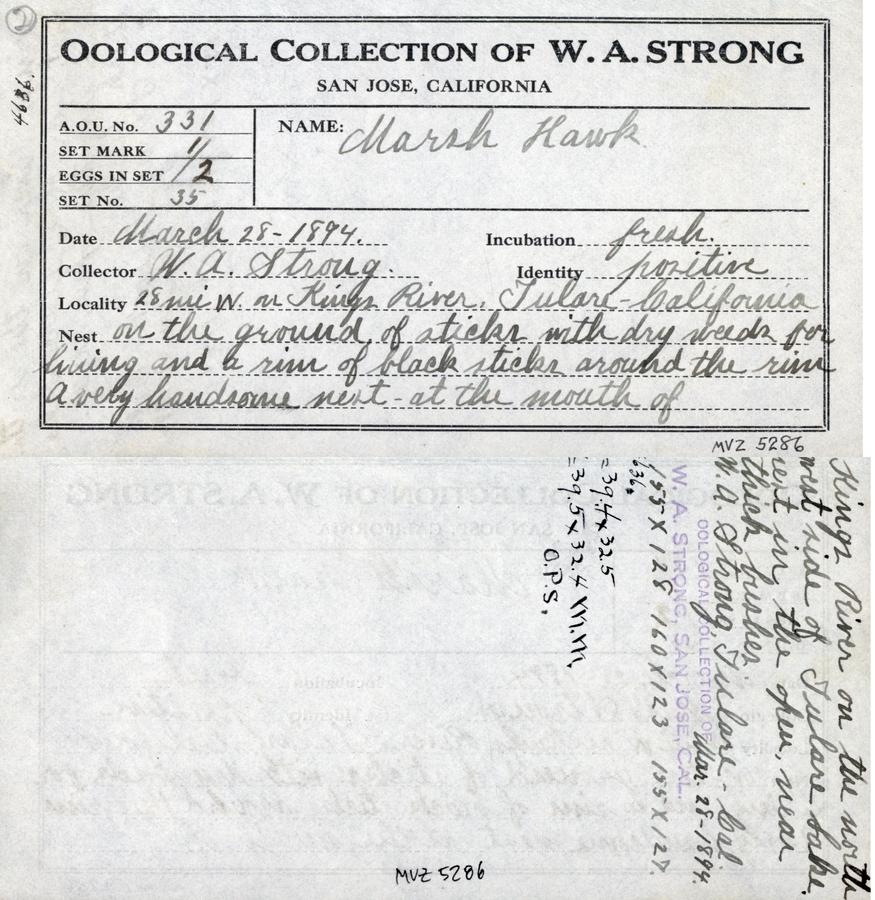 9894
OOLOGICAL COLLECTION OF W. A. STRONG
SAN JOSE, CALIFORNIA
A.O.U. No. 331
NAME: Marsh Hawk
SET MARK 1/
EGGS IN SET /2
SET No. 35
Date March 28-1894.
Incubation fresh.
Collector W. A. Strong.
Identity positive
Locality 28 mi W. on Kings River, Tulare-California
Nest on the ground, of sticks with dry weeds for
lining and a rim of black sticks around the rim
A very handsome nest - at the mouth of
MVZ 5286
Kings River on the north
west side of Tulare Lake.
nest in the open, near
thick bushes
W. A. Strong, Tulare - Cal
Mar. 28-1894.
OOLOGICAL COLLECTION OF
W. A. STRONG, SAN JOSE, CAL.
155 X 128 160 X 123 155 X 127.
636.
=39.4 x 32.5
=39.5 x 32.4 m.m.
O.P.S.
MVZ 5286